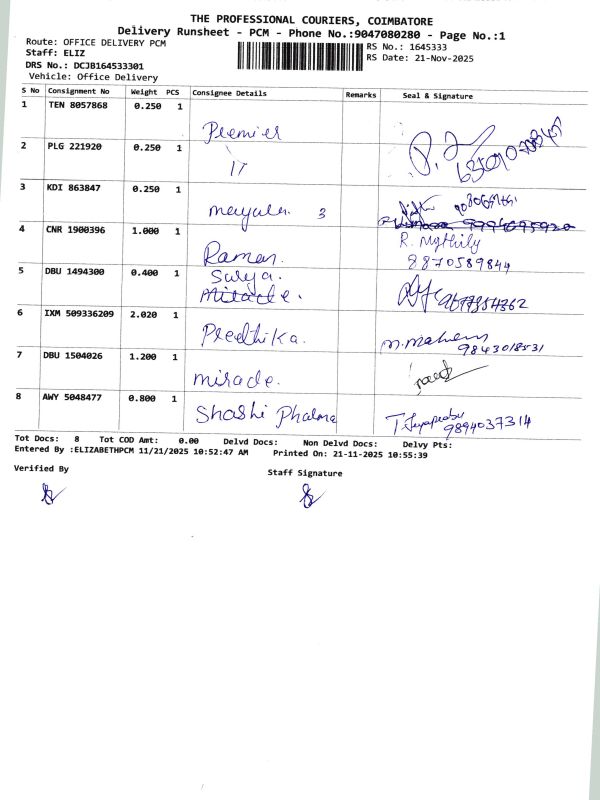 THE PROFESSIONAL COURIERS, COIMBATORE
Delivery Runsheet - PCM - Phone No.:9047080280 - Page No.:1
Route: OFFICE DELIVERY PCM
Staff: ELIZ
DRS No.: DCJB164533301
Vehicle: Office Delivery
RS No.: 1645333
RS Date: 21-Nov-2025
S No Consignment No Weight PCS Consignee Details Remarks Seal & Signature
1 TEN 8057868 0.250 1 Premier
2 PLG 221920 0.250 1 IT
3 KDI 863847 0.250 1 3
4 CNR 1900396 1.000 1 Raman. R. Mythily 8870589844
5 DBU 1494300 0.400 1 Surya. Miracle.
6 IXM 509336209 2.020 1 Preethika. 9843018531
7 DBU 1504026 1.200 1 miracle.
8 AWY 5048477 0.800 1 Shashi 9894037314
Tot Docs: 8 Tot COD Amt: 0.00 Delvd Docs: Non Delvd Docs: Delvy Pts:
Entered By :ELIZABETHPCM 11/21/2025 10:52:47 AM Printed On: 21-11-2025 10:55:39
Verified By
Staff Signature